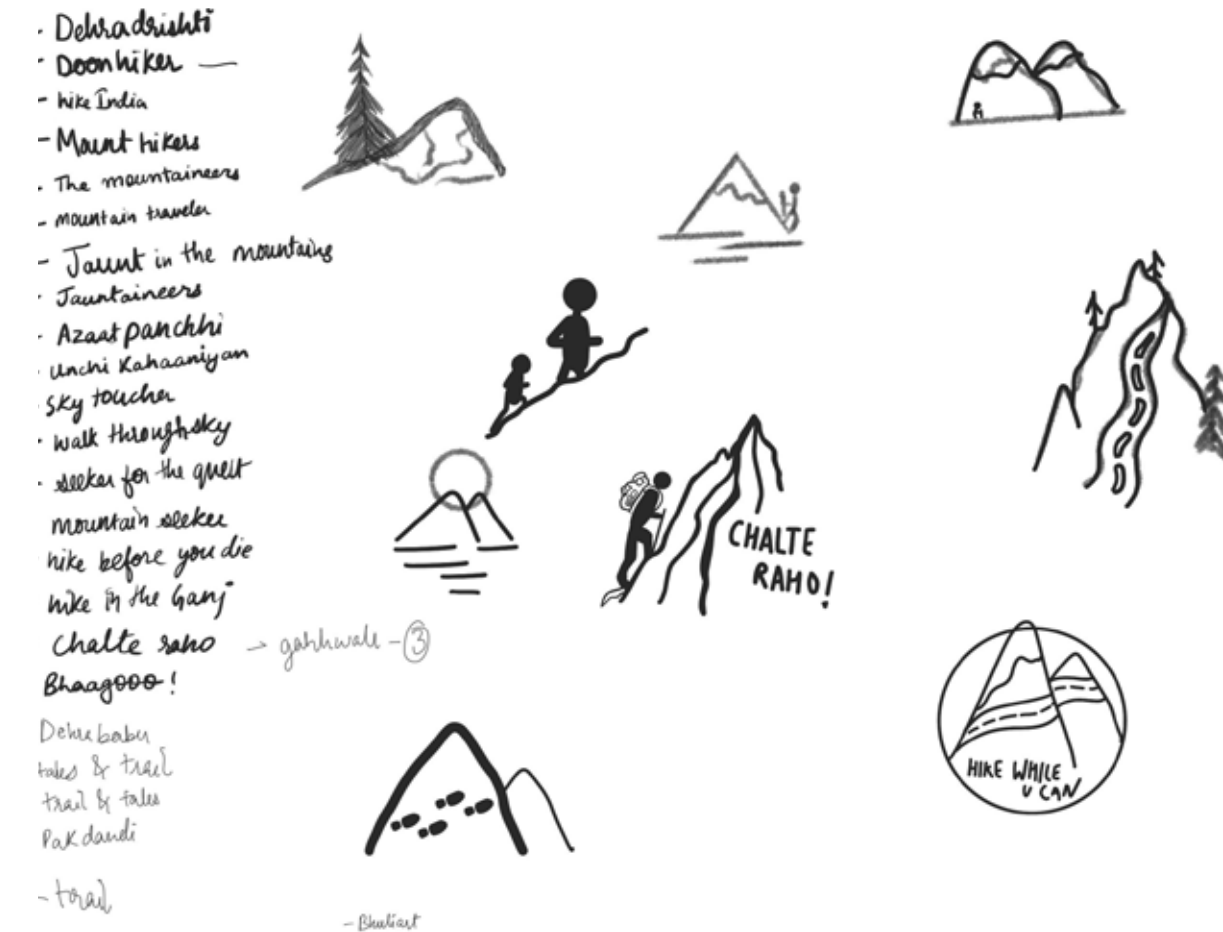 - Dehradrishti
- Doonhiker —
- hike India
- Mount hikers
- The mountaineers
- mountain traveler
- Jaunt in the mountains
- Jauntaineers
- Azaat panchhi
- Unchi Kahaaniyan
- Sky toucher
- walk through sky
- seeker for the quest
mountain seeker
hike before you die
hike in the Ganj
Chalte raho → garhwale - 3
Bhaagooo!
Dehrebabu
tales & trail
trail & tales
Pakdandi
- trail
- Bhuliart
CHALTE
RAHO!
HIKE WHILE
U CAN